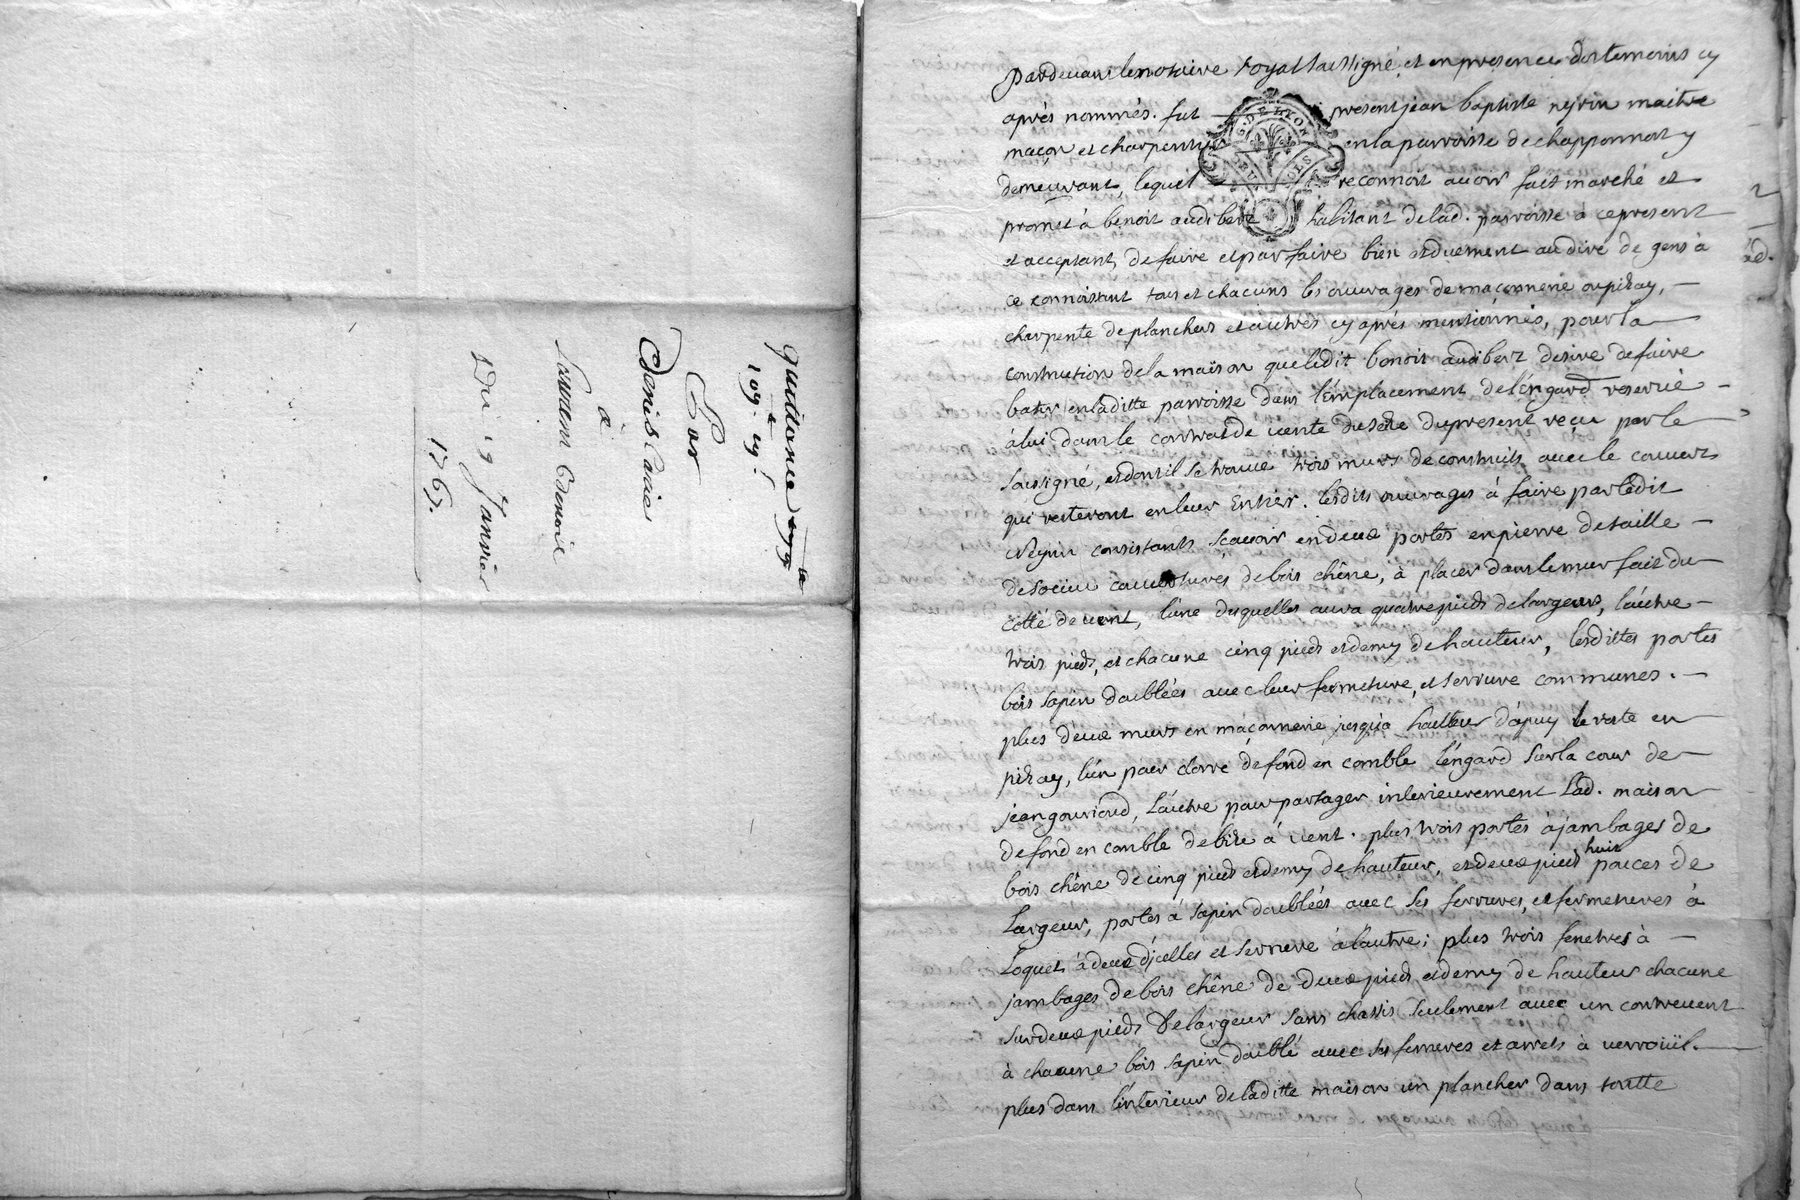 quittance
109.# 19.s
Por
Denis Carrie
à
Laurens Edenoit
Du 19 Janvier
1767.
Pardevant le notaire royal soussigné, et en presence des temoins cy
après nommés. fut present jean baptiste neyrin maitre
maçon et charpentier en la parroisse de chapponnost y
demeurant, lequel reconnoit avoir fait marché et
promet à benoit audibert habitant de lad. parroisse à ce present
et acceptant, de faire et parfaire bien et duement au dire de gens à
ce connoissant tous et chacuns les ouvrages de maçonnerie ou pizay,
charpente de planchers et autres cy après mentionnés, pour la
construction de la maison que ledit benoit audibert desire de faire
batir en laditte parroisse dans l'emplacement de l'engard reservé
à lui dans le contrat de vente du present reçu par le
soussigné, et dont il se trouve trois murs de construits avec le couvert
qui resteront en leur Entier. lesdits ouvrages à faire par ledit
Neyrin consistants sçavoir en deux portes en pierre de taille
de couvertures de bois chêne, à placer dans le mur fait du
côtté de vent, l'une desquelles aura quatre pieds de largeur, l'autre
trois pieds, et chacune cinq pieds et demy de hauteur, lesdittes portes
bois sapin doublées avec leur fermeture, et serrure communes.
plus deux murs en maçonnerie jusqu'a hauteur d'apuy le reste en
pizay, l'un pour clorre de fond en comble l'engard sur la cour de
jean gouriond, l'autre pour partager interieurement lad. maison
de fond en comble de bize à vent. plus trois portes à jambages de
bois chêne de cinq pieds et demy de hauteur, et deux pieds huit pouces de
Largeur, portes à sapin doublées avec ses ferrures, et fermetures à
Loquet à deux d'jcelles et serrure à l'autre; plus trois fenetres à
jambages de bois chêne de deux pieds et demy de hauteur chacune
sur deux pieds de largeur sans chassis seulement avec un contrevent
à chacune bois sapin doublé avec ses ferrures et arrets à verroüil.
plus dans l'interieur de laditte maison un plancher dans toutte
G. DE LYON